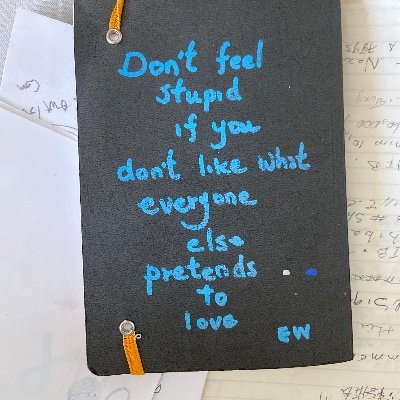 Don't feel
stupid
if you
don't like what
everyone
else
pretends
to
love
EW